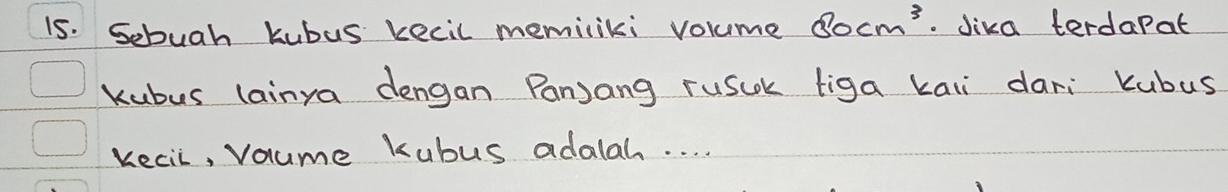 15. Sebuah kubus kecil memiliki volume 80cm³. Jika terdapat
kubus lainya dengan Panjang rusuk tiga kali dari kubus
kecil, Volume kubus adalah ....